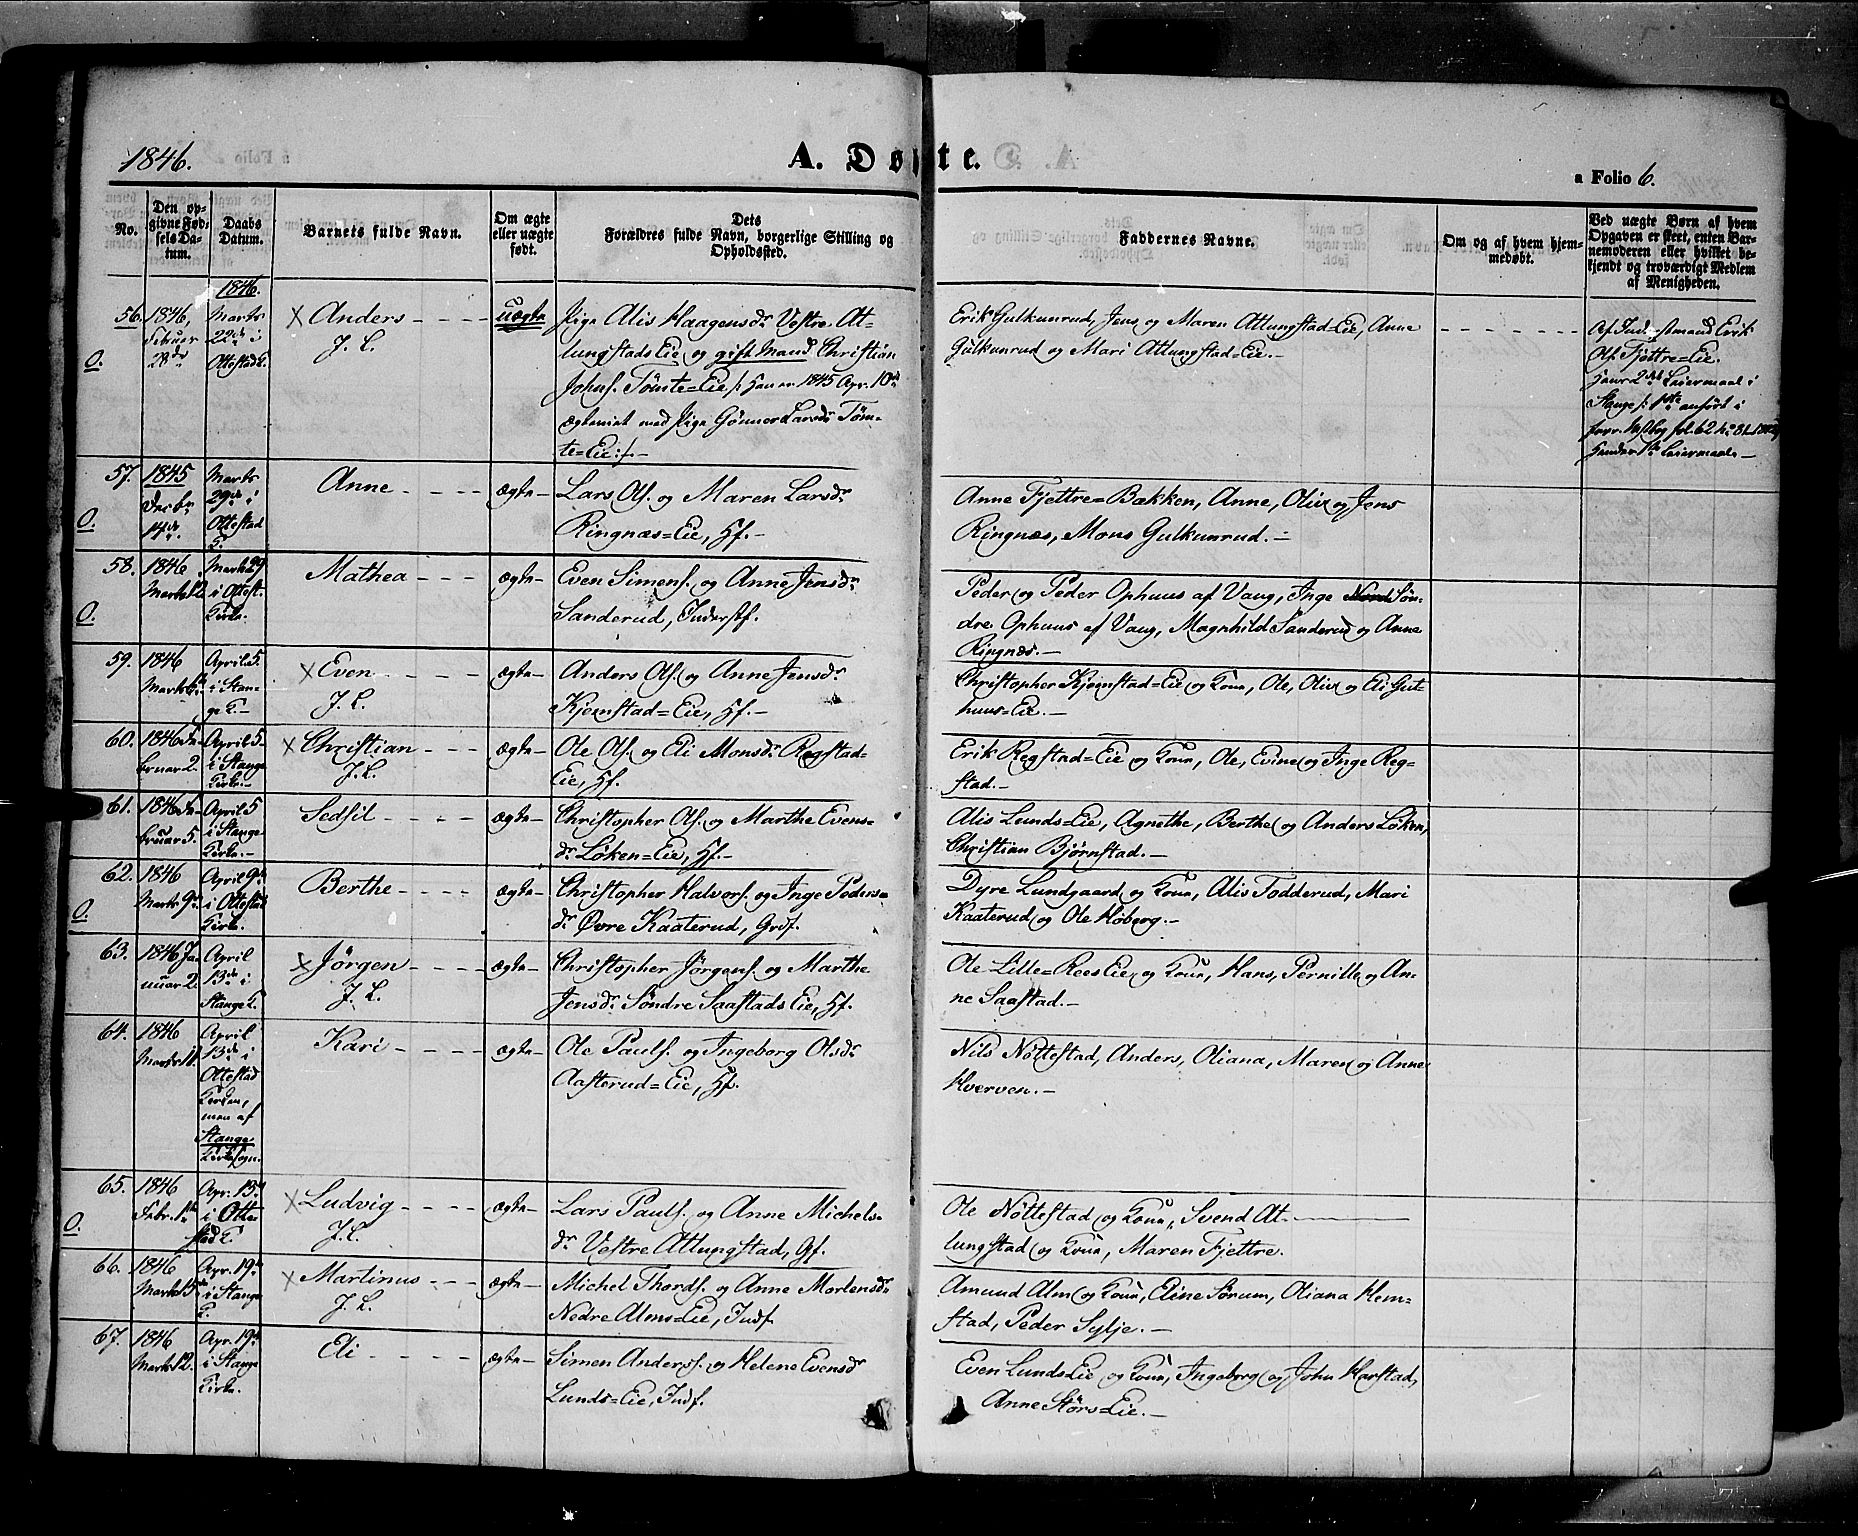 1846.
A. Døbte.
a Folio 6.
No.
Den opgivne Fødsels Datum.
Daabs Datum.
Barnets fulde Navn.
Om ægte eller uægte født.
Dets Forældres fulde Navn, borgerlige Stilling og Opholdssted.
Faddernes Navne.
Om og af hvem hjemmedøbt.
Ved uægte Børn af hvem Opgaven er skeet, enten Barnemoderen eller hvilket bekjendt og troværdigt Medlem af Menigheden.
1846.
56. 1846, Februar 28de Marts 22de i Ottestad K. × Anders J. L. uægte
O.
Pige Alis Haagensdr Vestre At-
lungstads Eie og gift Mand Christian
Johns. Tomte=Eie /: Han er 1845 Apr. 10de
ægteviet med Pige Gønner Larsdr Tom-
te=Eie :/. –
Erik Gulkunrud, Jens og Maren Atlungstad=Eie, Anne
Gulkunrud og Mari Atlungstad=Eie. –
Af Inderstmand Erik
Ols. Fjettre=Eie.
Hans 2det Leiermaal i
Stange /: 1ste anført i
Hendes 1ste Leiermaal –
57. 1845 Decbr. 14de. Marts 29de i Ottestad K. Anne – – – – ægte –
O.
Lars Ols. og Maren Larsdr
Ringnæs=Eie, Hf. –
Anne Fjettre=Bakken, Anne, Olia og Jens
Ringnæs, Mons Gulkunrud. –
58. 1846 Marts 12. Marts 29 i Ottest. Kirke. Mathea – – – ægte –
O.
Even Simens. og Anne Jensdr
Sanderud, Inderstf.
Peder og Peder Ophuus af Vang, Inge Søn-
dre Ophuus af Vang, Magnhild Sanderud og Anne
Ringnæs. –
59. 1846 Marts April 5. i Stange K. – × Even – – – – J. L. ægte –
Anders Ols. og Anne Jensdr
Kjemstad=Eie, Hf. –
Christopher Kjemstad=Eie og Kone, Ole, Olia og Eli Gut-
huus=Eie. –
60. 1846 Februar 2. April 5. i Stange Kirke. – × Christian – – J. L. ægte –
Ole Ols. og Eli Monsdr Rogstad-
Eie, Hf.
Erik Rogstad=Eie og Kone, Ole, Evine og Inge Rog=
stad. –
61. 1846 Februar 5. April 5 i Stange Kirke. – Sedsil – – – – ægte –
Christopher Ols. og Marthe Evens=
dr Løken=Eie, Hf. –
Alis Lunds=Eie, Agnethe, Berthe og Anders Løken,
Christian Bjørnstad. –
62. 1846 Marts 9de April 9de i Ottestad Kirke. Berthe – – – – ægte –
O.
Christopher Halvors. og Inge Peders=
dr Øvre Kaaterud, Grdf.
Dyre Lundgaard og Kone, Alis Todderud, Mari
Kaaterud og Ole Hoberg. –
63. 1846 Januar 2. April 13de i Stange K. × Jørgen – – – J. L. ægte –
Christopher Jørgens. og Marthe
Jensdr Søndre Saastads Eie, Hf.
Ole Lille=Rees Eie og Kone, Hans, Pernille og An-
ne Saastad. –
64. 1846 Marts 11. April 13de i Ottestad Kirken, men af Stange Kirkesogn. Kari – – – – ægte –
Ole Pauls. og Ingeborg Olsdr
Aasterud=Eie, Hf.
Nils Nøttestad, Anders, Oliana, Maren og Anne
Hverven. –
65. 1846 Febr. 1ste Apr. 13de i Ottestad K. × Ludvig – – – – J. L. ægte –
O.
Lars Pauls. og Anne Michels=
dr Vestre Atlungstad, Gf.
Ole Nøttestad og Kone, Svend At-
lungstad og Kone, Maren Fjettre.
66. 1846 Marts Apr. 19de i Stange K. × Martinus – – – J. L. ægte –
Michel Thords. og Anne Mortensdr
Nedre Alms=Eie, Indf.
Amund Alm og Kone, Eline Sørum, Oliana Hem=
stad, Peder Sylje. –
67. 1846 Marts 12. Apr. 19de i Stange Kirke. Eli – – – – ægte –
Simen Anders. og Helene Evensdr
Lunds=Eie, Indf.
Even Lunds=Eie og Kone, Ingeborg og John Harstad,
Anne Størs=Eie. –